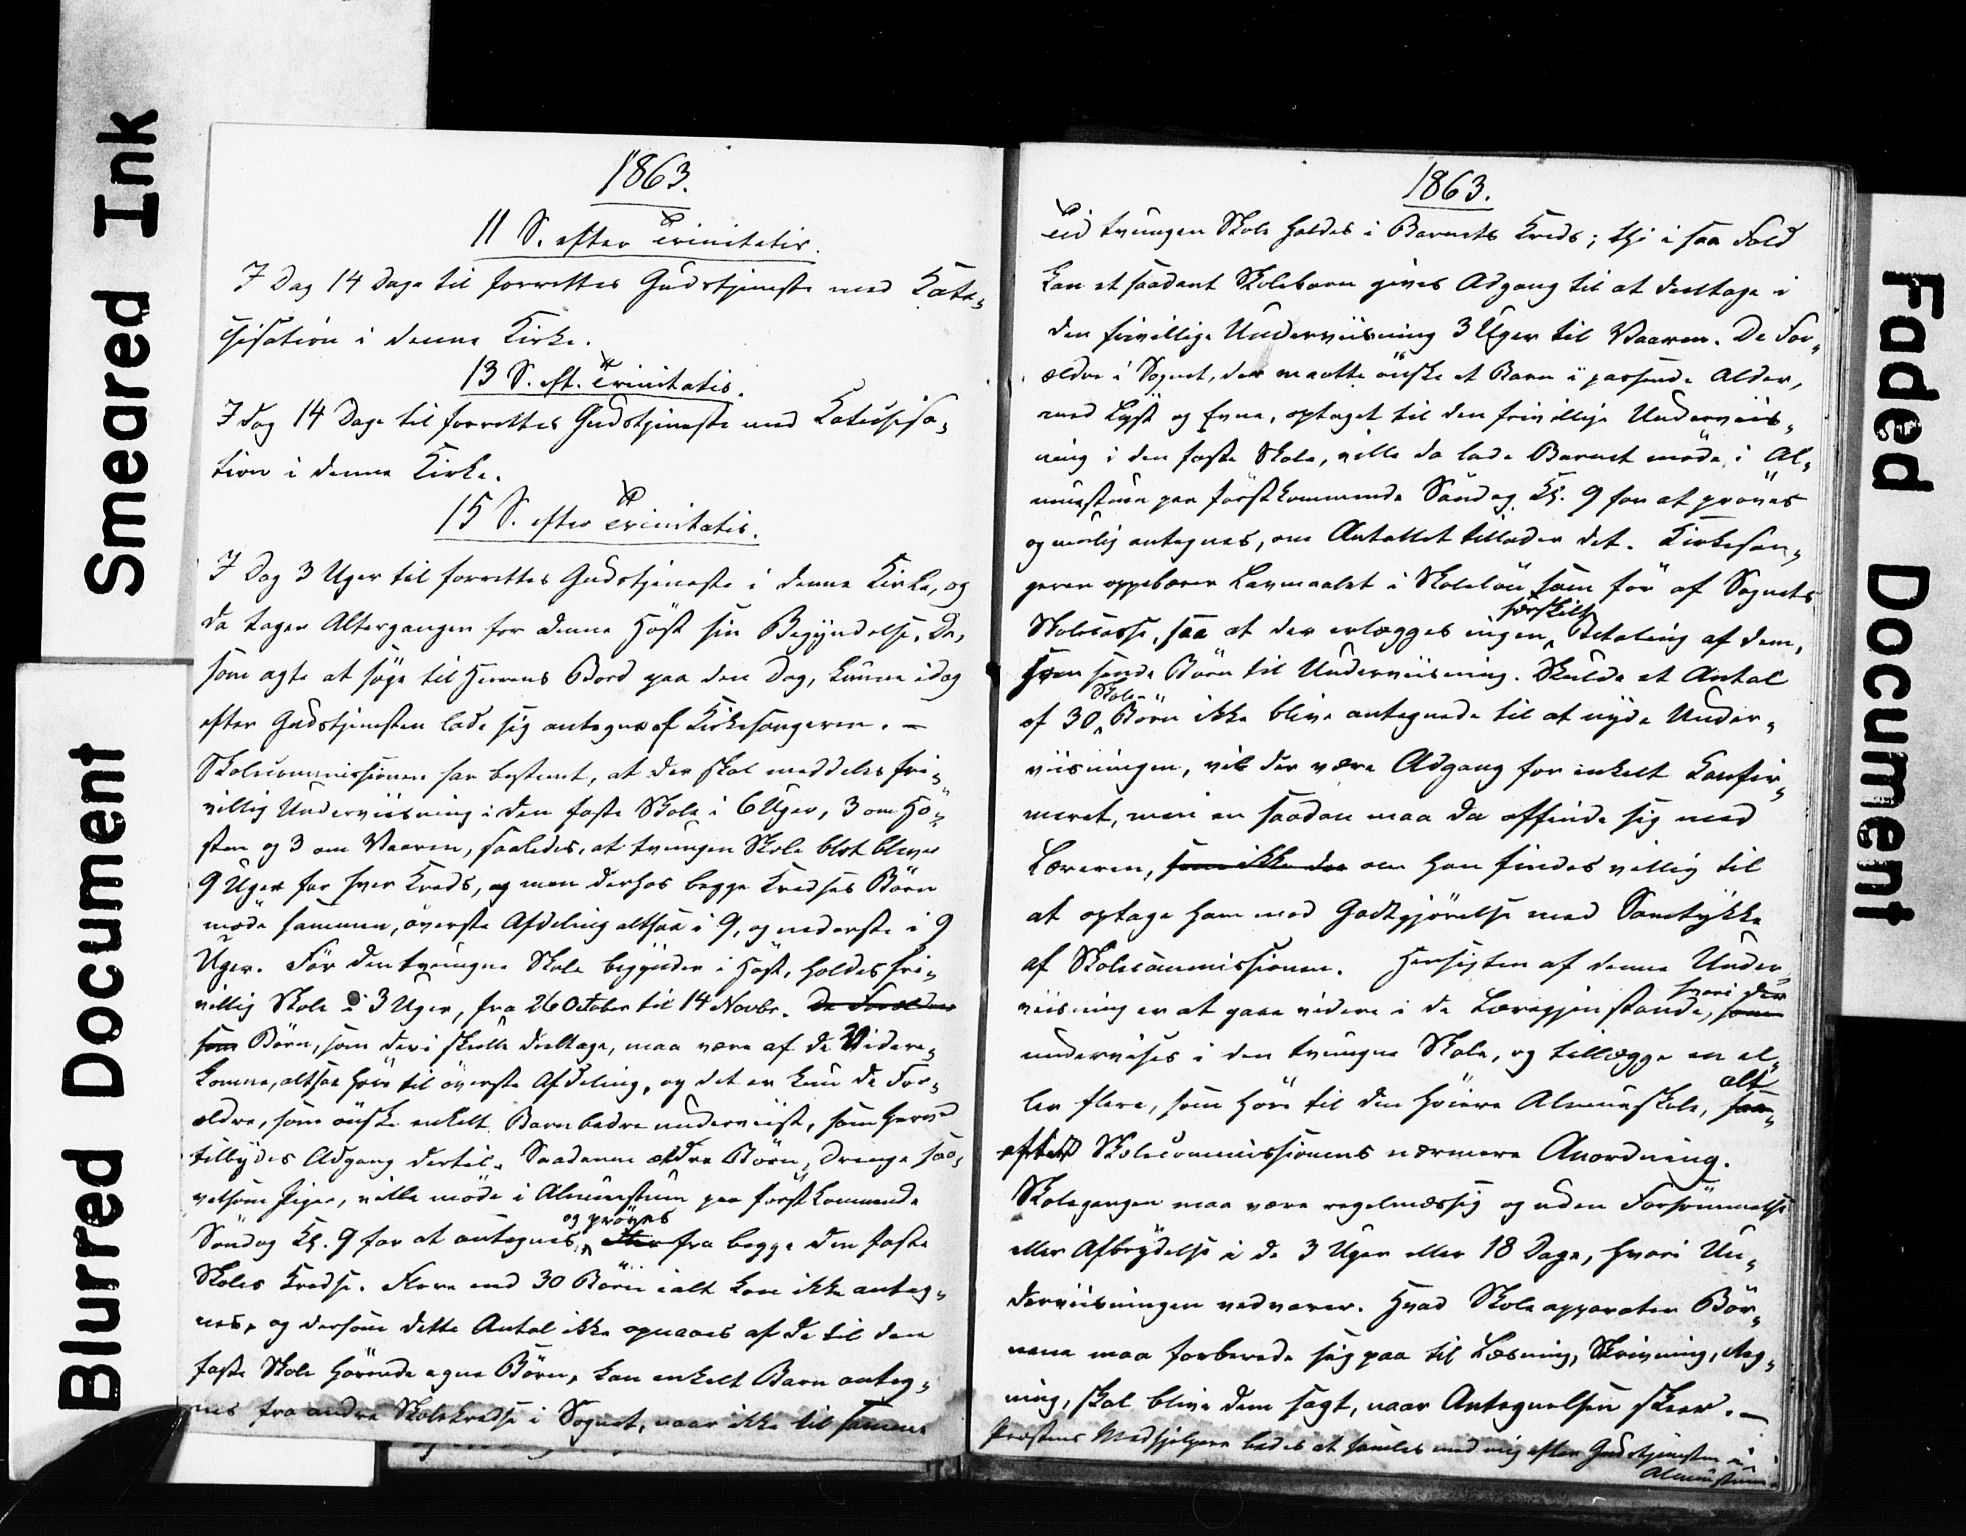 Smeared Ink
Blurred Document
Faded Document
1863.
11 S. efter Trinitatis.
I Dag 14 Dage til forrettes Gudstjeneste med Kate-
chisation i denne Kirke.
13 S. eft. Trinitatis.
I Dag 14 Dage til forrettes Gudstjeneste med Katechisa-
tion i denne Kirke.
15 S. efter Trinitatis.
I Dag 3 Uger til forrettes Gudstjeneste i denne Kirke, og
da tager Altergangen for denne Høst sin Begyndelse. De,
som agte at søge til Herrens Bord paa den Dag, kunne idag
efter Gudstjenesten lade sig antegne af Kirkesangeren. –
Skolecommissionen har bestemt, at der skal meddeles fri-
villig Underviisning i den faste Skole i 6 Uger, 3 om Hø-
sten og 3 om Vaaren, saaledes, at tvungen Skole blot bliver
9 Uger for hver Kreds, og men derhos begge Kredses Børn
møde sammen, øverste Afdeling altsaa i 9, og nederste i 9
Uger. Før den tvungne Skole begynder i Høst, holdes fri-
villig Skole i 3 Uger, fra 26 October til 14 Novbr. De Forældre
som Børn, som deri skulle deeltage, maa være af de Videre-
komne, altsaa høre til øverste Afdeling, og det er kun de For-
ældre, som ønske enkelt Barn bedre underviist, som herved
tilbydes Adgang dertil. Saadanne ældre Børn, Drenge saa-
velsom Piger, ville møde i Almuestuen paa førstkommende
og prøves
Søndag Kl. 9 for at antegnes, fra begge den faste
Skoles Kredse. Flere end 30 Børn ialt kan ikke anteg-
nes, og dersom dette Antal ikke opnaaes af de til den
faste Skole hørende egne Børn, kan enkelt Barn anteg-
nes fra andre Skolekredse i Sognet, naar ikke til samme
1863.
Tid tvungen Skole holdes i Barnets Kreds; thi i saa Fald
kan et saadant Skolebarn gives Adgang til at deeltage i
den frivillige Underviisning 3 Uger til Vaaren. De For-
ældre i Sognet, der maatte ønske et Barn i passende Alder,
med Lyst og Evne, optaget til den frivillige Underviis-
ning i den faste Skole, ville da lade Barnet møde i Al-
muestuen paa førstkommende Søndag Kl. 9 for at prøves
og muelig antegnes, om Antallet tillader det. Kirkesan-
geren oppebærer Lavmaalet i Skoleløn som før af Sognets
særskilt
Skolecasse, saa at der erlægges ingen Betaling af dem,
som sende Børn til Underviisning. Skulde et Antal
Skole-
af 30 Børn ikke blive antegnede til at nyde Under-
viisningen, vil der være Adgang for enkelt Konfir-
meret, men en saadan maa da affinde sig med
Læreren, som ikke der om han findes villig til
at optage ham mod Godtgjørelse med Samtykke
af Skolecommissionen. Hensigten af denne Under-
hvori der
viisning er at gaae videre i de Læregjenstande, som
undervises i den tvungne Skole, og tillægge en el-
alt
ler flere, som høre til den høiere Almueskole, saa-
efter Skolecommissionens nærmere Anordning.
Skolegangen maa være regelmæssig og uden Forsømmelse
eller Afbrydelse i de 3 Uger eller 18 Dage, hvori Un-
derviisningen vedvarer. Hvad Skoleapparater Bør-
nene maa forberede sig paa til Læsning, Skrivning, Reg-
ning, skal blive dem sagt, naar Antegnelsen skeer. –
Præstens Medhjelpere bedes at samles med mig efter Gudstjenesten i
Almuestuen.